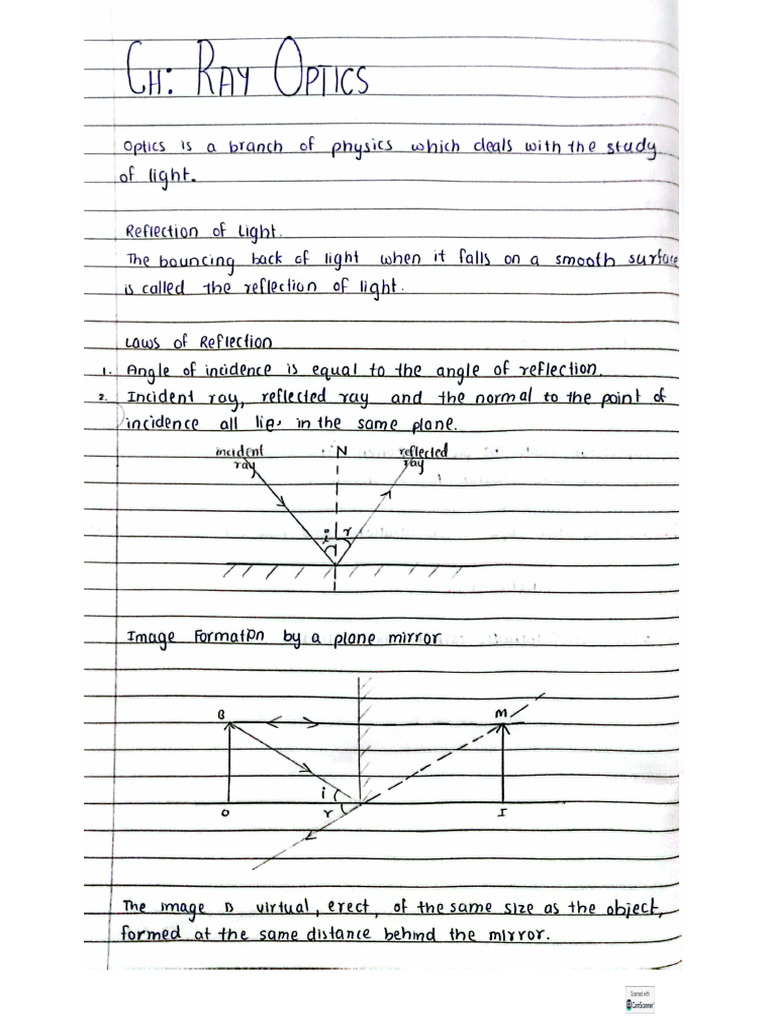 CH: RAY OPTICS
Optics is a branch of physics which deals with the study
of light.
Reflection of Light.
The bouncing back of light when it falls on a smooth surface
is called the reflection of light.
Laws of Reflection
1. Angle of incidence is equal to the angle of reflection.
2. Incident ray, reflected ray and the normal to the point of
incidence all lies in the same plane.
incident ray
N
reflected ray
i
r
Image Formation by a plane mirror
B
M
i
r
O
I
The image is virtual, erect, of the same size as the object,
formed at the same distance behind the mirror.
Scanned with
CS CamScanner